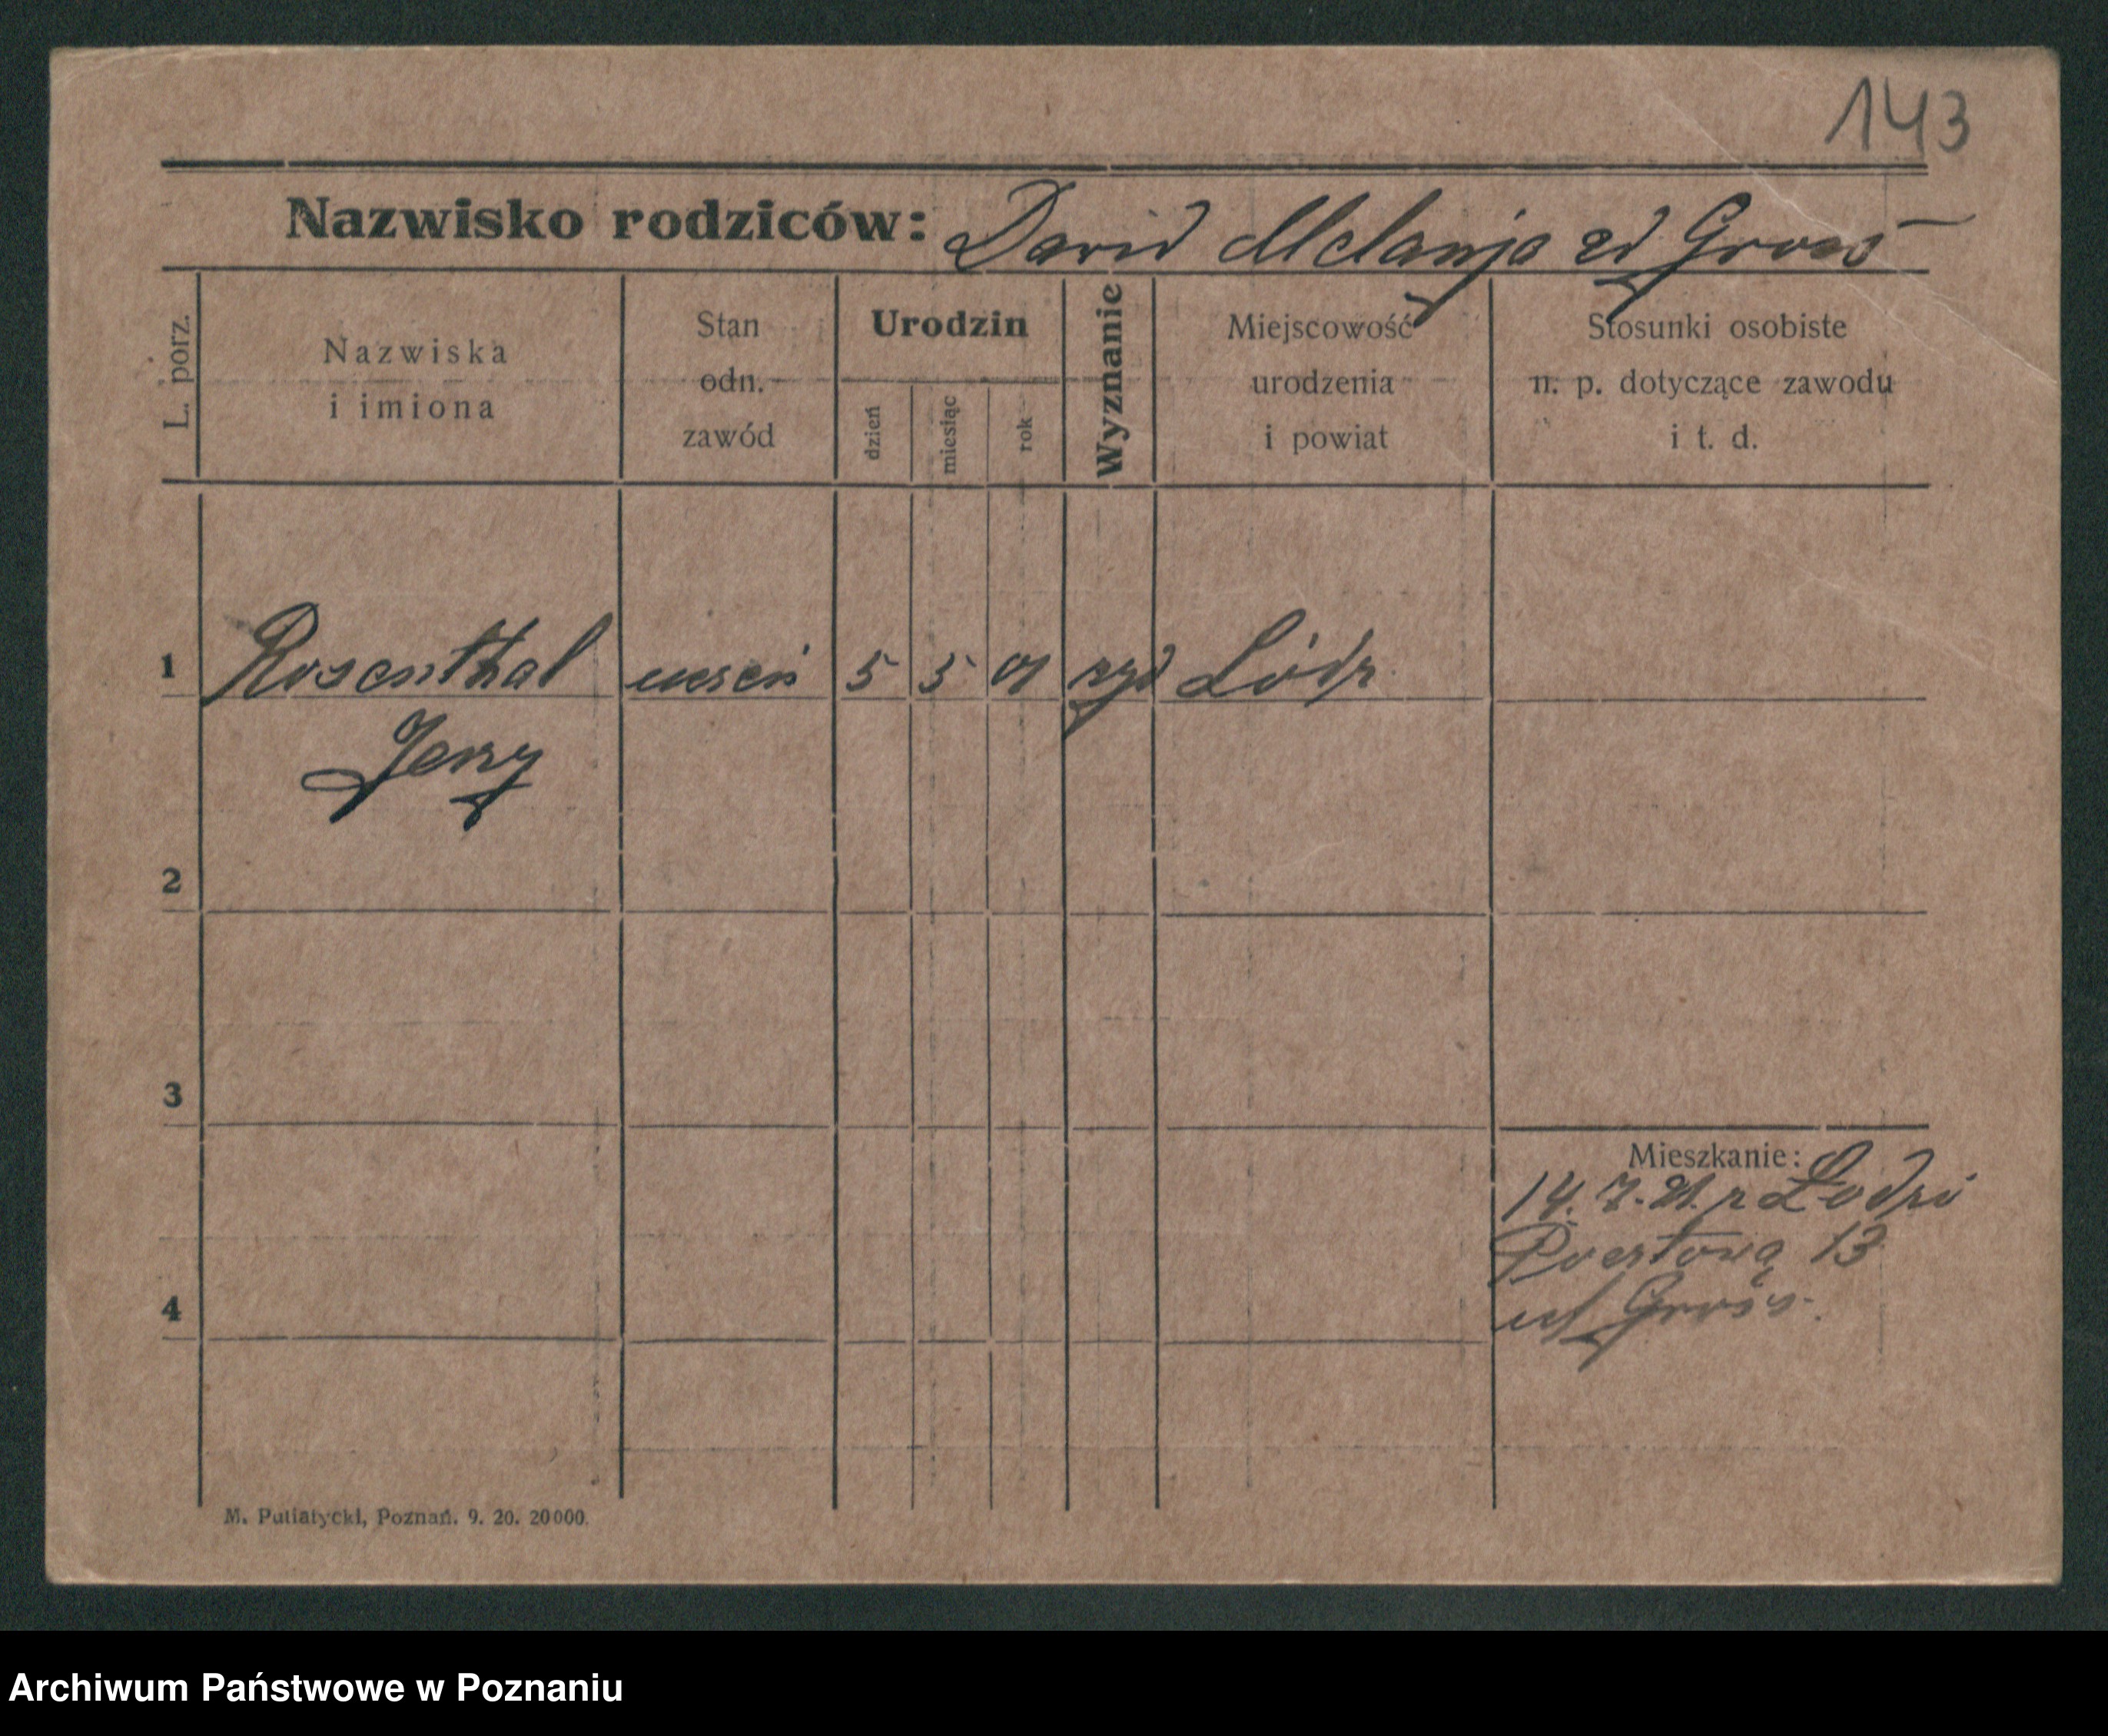 143
Nazwisko rodziców: David Melanja zd Gross
L. porz.
Nazwiska i imiona
Stan odn. zawód
Urodzin
dzień
miesiąc
rok
Wyznanie
Miejscowość urodzenia i powiat
Stosunki osobiste n. p. dotyczące zawodu i t. d.
1 Rosenthal uczeń 5 5 01 żyd Łódź
Jerzy
2
3
Mieszkanie:
14. 7. 21. z Łodzi
Pocztowa 13
4
Gross.
M. Putiatycki, Poznań. 9. 20. 20000.
Archiwum Państwowe w Poznaniu